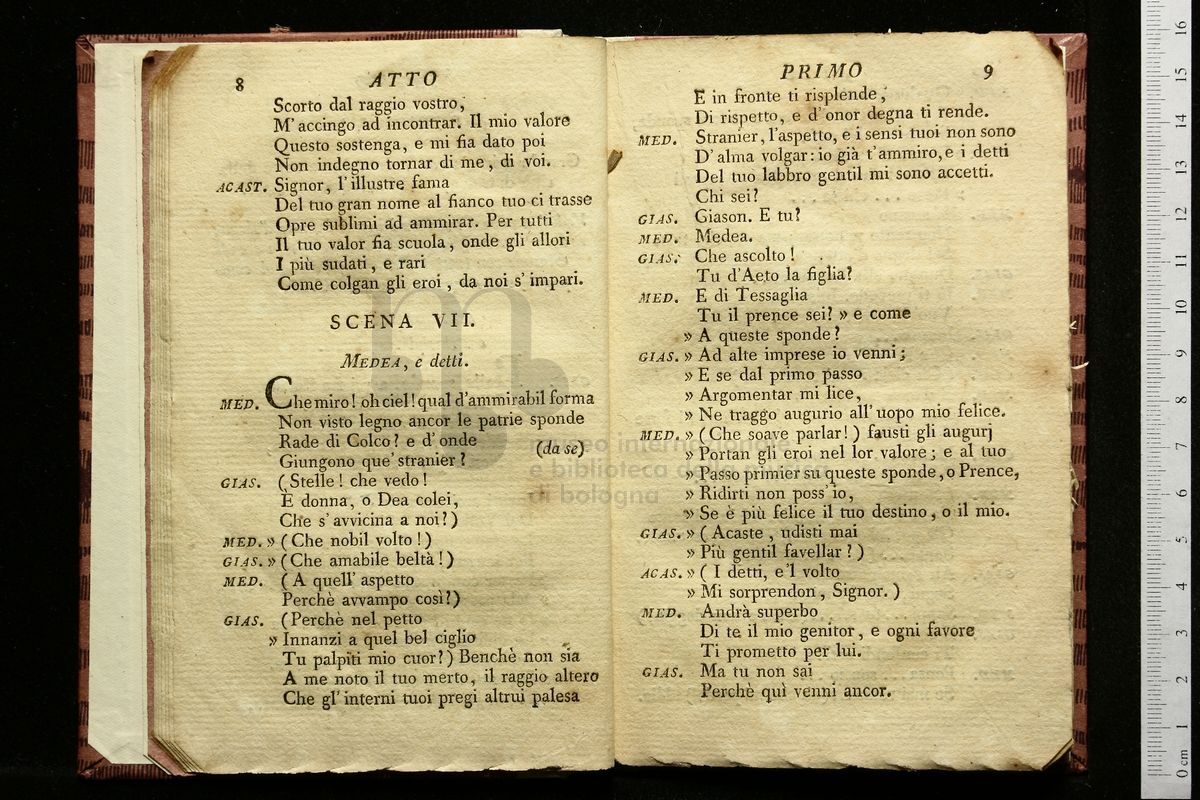 8 ATTO
Scorto dal raggio vostro,
M' accingo ad incontrar. Il mio valore
Questo sostenga, e mi fia dato poi
Non indegno tornar di me, di voi.
ACAST. Signor, l' illustre fama
Del tuo gran nome al fianco tuo ci trasse
Opre sublimi ad ammirar. Per tutti
Il tuo valor fia scuola, onde gli allori
I più sudati, e rari
Come colgan gli eroi, da noi s' impari.
SCENA VII.
MEDEA, e detti.
MED. Che miro! oh ciel! qual d'ammirabil forma
Non visto legno ancor le patrie sponde
Rade di Colco? e d' onde
Giungono que' stranier? (da se)
GIAS. (Stelle! che vedo!
È donna, o Dea colei,
Che s' avvicina a noi?)
MED. » (Che nobil volto!)
GIAS. » (Che amabile beltà!)
MED. (A quell' aspetto
Perchè avvampo così?)
GIAS. (Perchè nel petto
» Innanzi a quel bel ciglio
Tu palpiti mio cuor?) Benchè non sia
A me noto il tuo merto, il raggio altero
Che gl' interni tuoi pregi altrui palesa
PRIMO 9
E in fronte ti risplende,
Di rispetto, e d' onor degna ti rende.
MED. Stranier, l'aspetto, e i sensi tuoi non sono
D' alma volgar: io già t'ammiro, e i detti
Del tuo labbro gentil mi sono accetti.
Chi sei?
GIAS. Giason. E tu?
MED. Medea.
GIAS. Che ascolto!
Tu d'Aeto la figlia?
MED. E di Tessaglia
Tu il prence sei? » e come
» A queste sponde?
GIAS. » Ad alte imprese io venni;
» E se dal primo passo
» Argomentar mi lice,
» Ne traggo augurio all' uopo mio felice.
MED. » (Che soave parlar!) fausti gli augurj
» Portan gli eroi nel lor valore; e al tuo
» Passo primier su queste sponde, o Prence,
» Ridirti non poss' io,
» Se è più felice il tuo destino, o il mio.
GIAS. » (Acaste, udisti mai
» Più gentil favellar?)
ACAS. » (I detti, e'l volto
» Mi sorprendon, Signor.)
MED. Andrà superbo
Di te il mio genitor, e ogni favore
Ti prometto per lui.
GIAS. Ma tu non sai
Perchè quì venni ancor.
museo internazionale
e biblioteca della musica
di bologna
0 cm 1 2 3 4 5 6 7 8 9 10 11 12 13 14 15 16